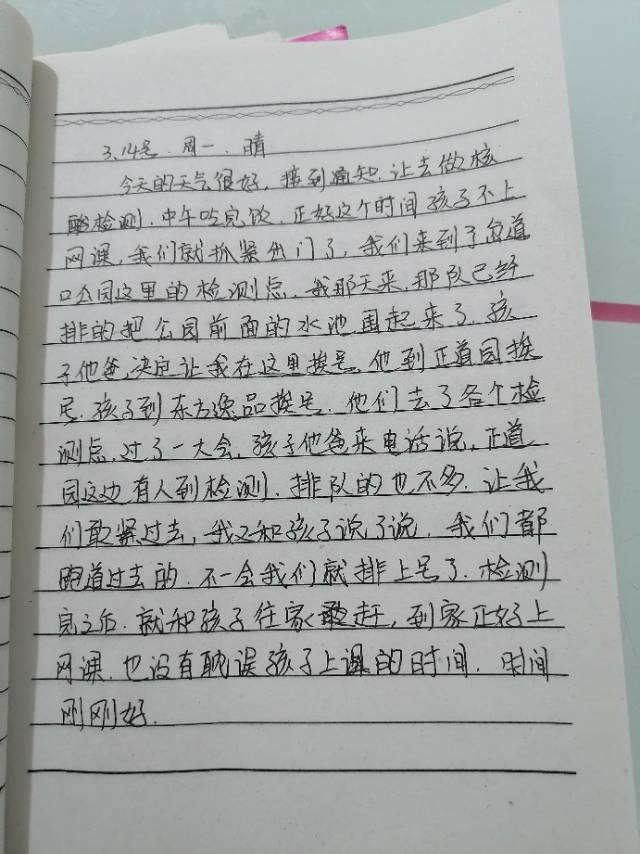 3.14号.周一.晴
今天的天气很好,接到通知,让去做核
酸检测.中午吃完饭,正好这个时间孩子不上
网课,我们就抓紧出门了,我们来到了岔道
口公园这里的检测点,我那天来,那队已经
排的把公园前面的水池围起来了.孩
子他爸,决定让我在这里挨号,他到正道园挨
号.孩子到东方逸品挨号.他们去了各个检
测点,过了一大会,孩子他爸来电话说,正道
园这边有人到检测.排队的也不多.让我
们敢紧过去,我又和孩子说了说.我们都
跑道过去的.不一会我们就排上号了.检测
完之后.就和孩子往家赶,到家正好上
网课.也没有耽误孩子上课的时间.时间
刚刚好.